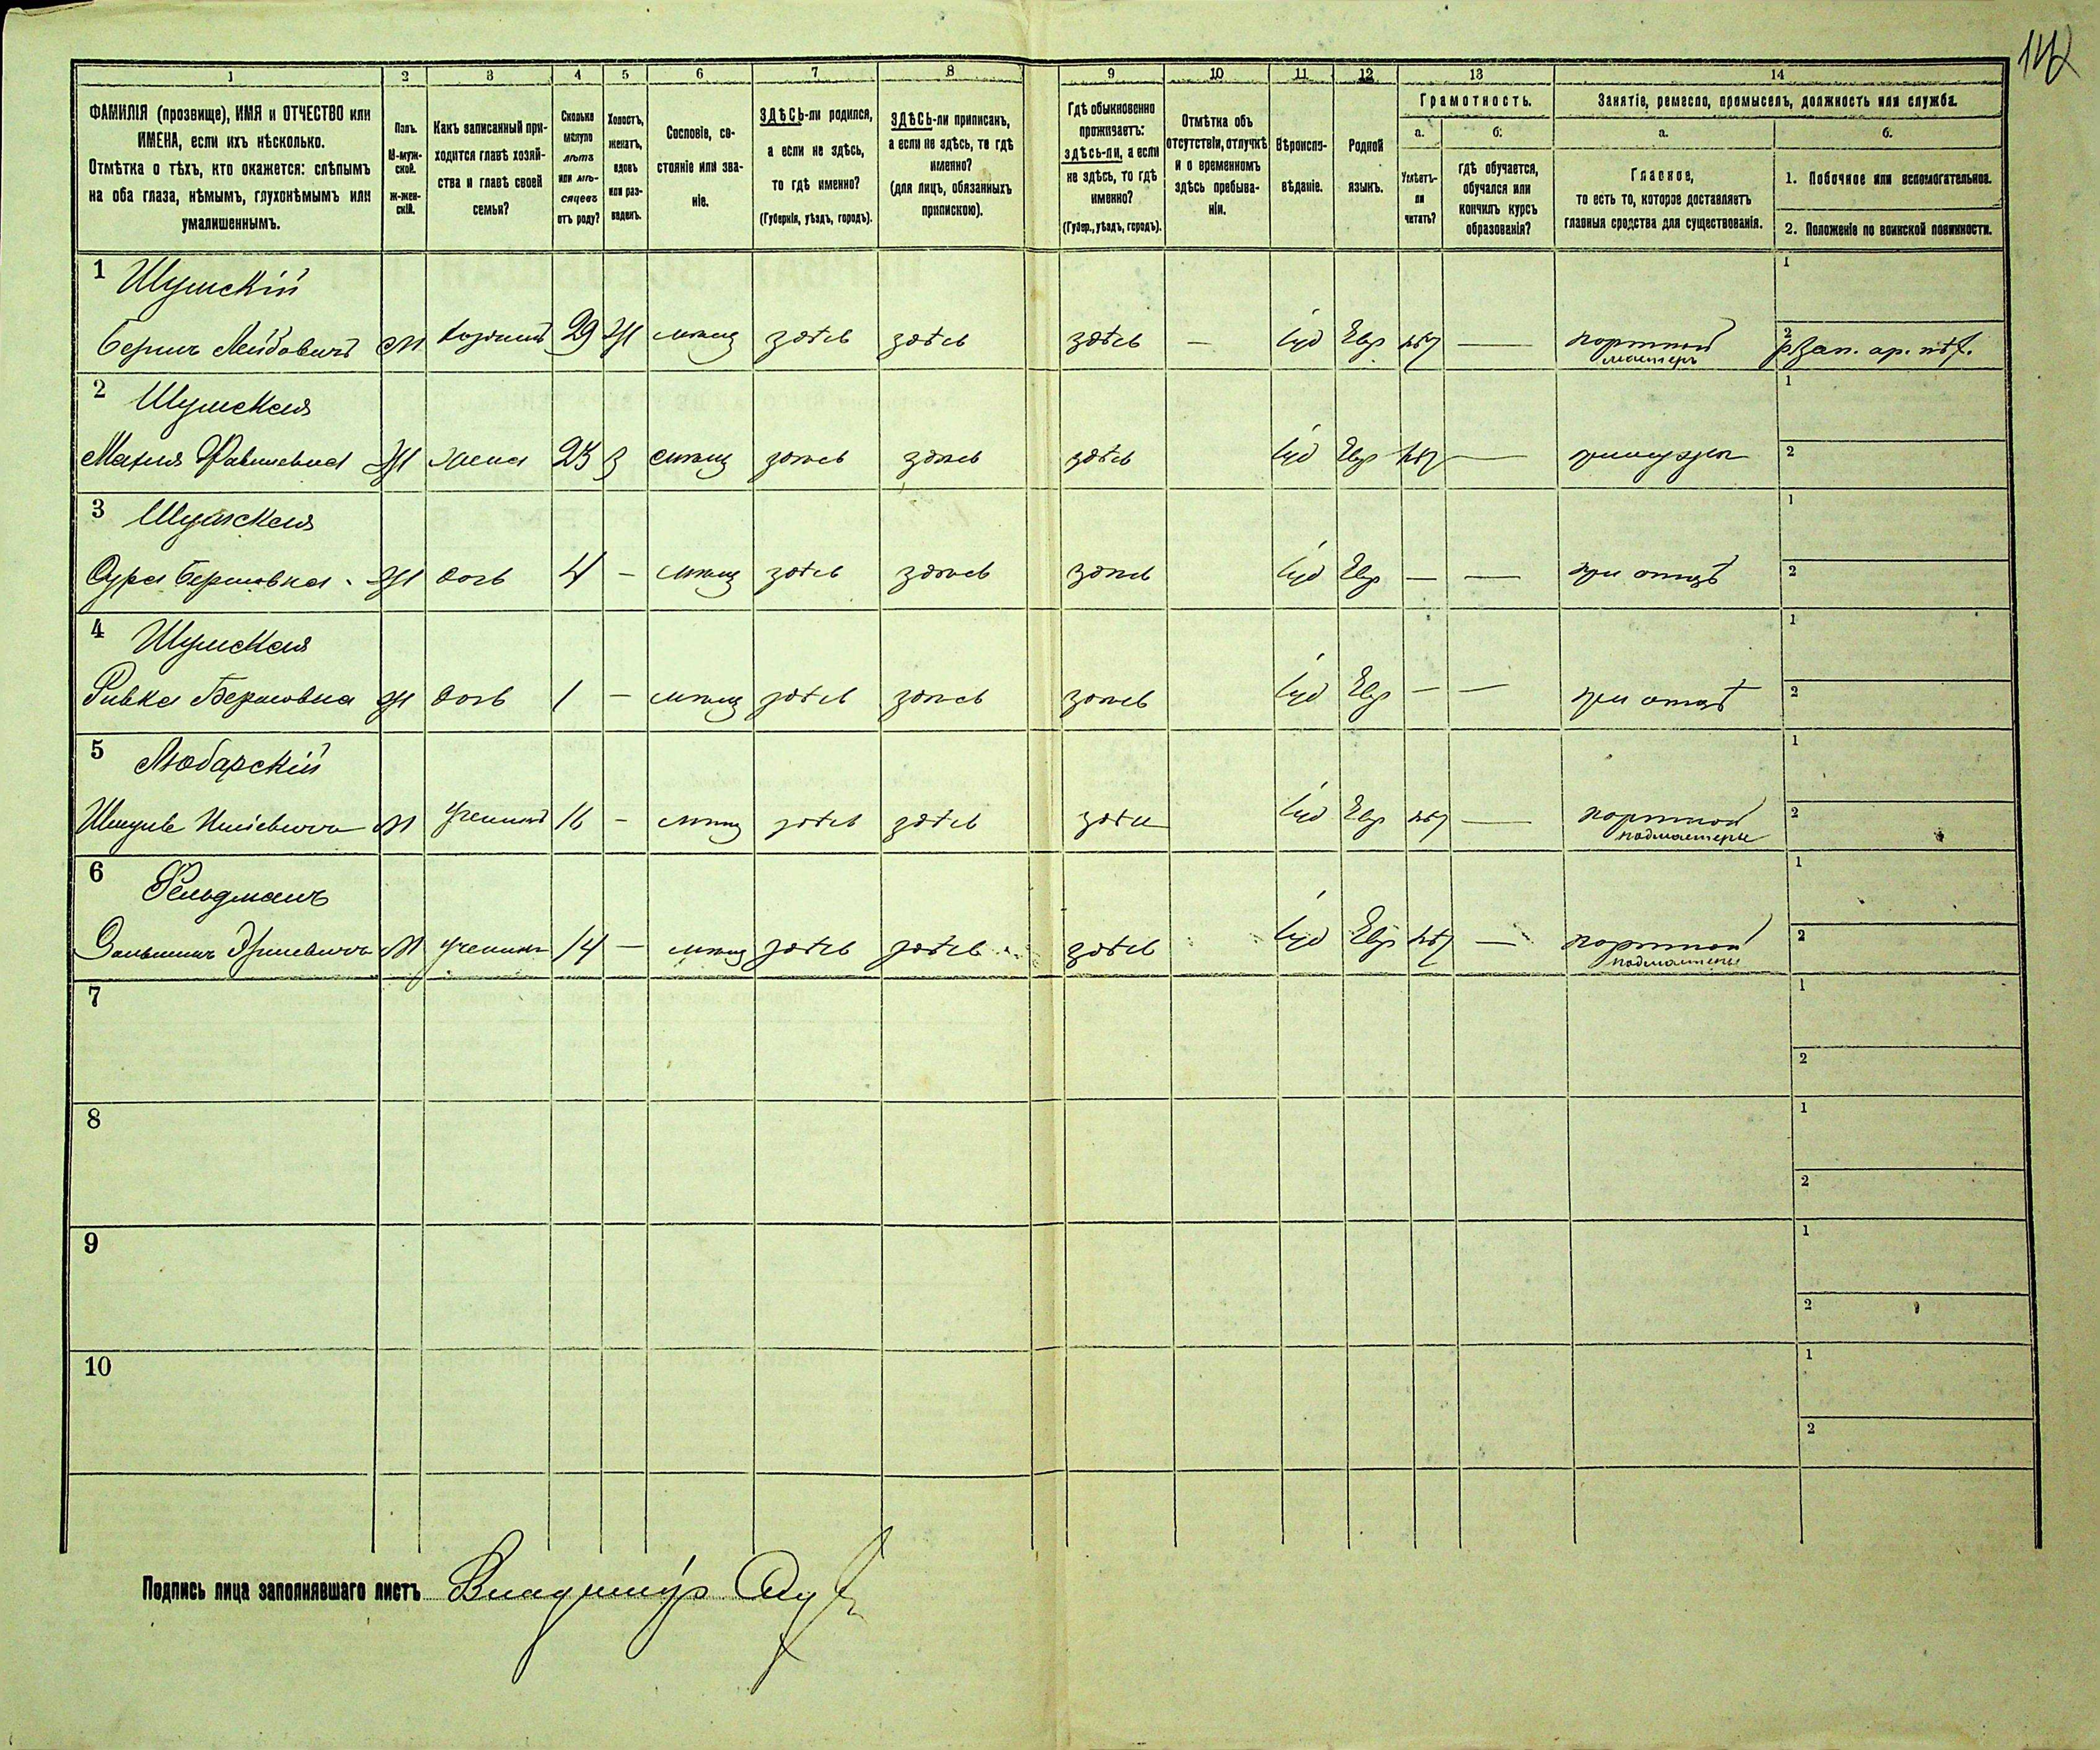 142
1 2 3 4 5 6 7 8 9 10 11 12 13 14
ФАМИЛІЯ (прозвище), ИМЯ и ОТЧЕСТВО или
ИМЕНА, если ихъ нѣсколько.
Отмѣтка о тѣхъ, кто окажется: слѣпымъ
на оба глаза, нѣмымъ, глухонѣмымъ или
умалишеннымъ.
Полъ.
М-муж-
ской.
Ж-жен-
скій.
Какъ записанный при-
ходится главѣ хозяй-
ства и главѣ своей
семьи?
Сколько
минуло
лѣтъ
или мѣ-
сяцевъ
отъ роду?
Холостъ,
женатъ,
вдовъ
или раз-
веденъ.
Сословіе, со-
стояніе или зва-
ніе.
ЗДѢСЬ-ли родился,
а если не здѣсь,
то гдѣ именно?
(Губернія, уѣздъ, городъ).
ЗДѢСЬ-ли приписанъ,
а если не здѣсь, то гдѣ
именно?
(для лицъ, обязанныхъ
припискою).
Гдѣ обыкновенно
проживаетъ:
здѣсь-ли, а если
не здѣсь, то гдѣ
именно?
(Губер., уѣздъ, городъ).
Отмѣтка объ
отсутствіи, отлучкѣ
и о временномъ
здѣсь пребыва-
ніи.
Вѣроиспо-
вѣданіе.
Родной
языкъ.
Грамотность.
а.
Умѣетъ-
ли
читать?
б.
гдѣ обучается,
обучался или
кончилъ курсъ
образованія?
Занятіе, ремесло, промыселъ, должность или служба.
а.
Главное,
то есть то, которое доставляетъ
главныя средства для существованія.
б.
1. Побочное или вспомогательное.
2. Положеніе по воинской повинности.
1 Шумскій 1
Берко Лейбовичъ М хозяинъ 29 Ж мѣщ здѣсь здѣсь здѣсь — Іуд Евр нѣт — портной 2
мастеръ
2 Шумская 1
Жі жена 23 З мѣщ здѣсь здѣсь здѣсь Іуд Евр нѣт — при мужѣ 2
3 Шумская 1
Сура Берковна Ж дочь 4 — мѣщ здѣсь здѣсь здѣсь Іуд Евр — — при отцѣ 2
4 Шумская 1
Ривка Берковна Ж дочь 1 — мѣщ здѣсь здѣсь здѣсь Іуд Евр — — при отцѣ 2
5 Любарскій 1
М ученикъ 16 — мѣщ здѣсь здѣсь здѣсь Іуд Евр нѣт — портной 2
подмастерье
6 Фельдманъ 1
М ученикъ 14 — мѣщ здѣсь здѣсь здѣсь Іуд Евр нѣт — портной 2
подмастерье
7 1
2
8 1
2
9 1
2
10 1
2
Подпись лица заполнявшаго листъ Владиміръ